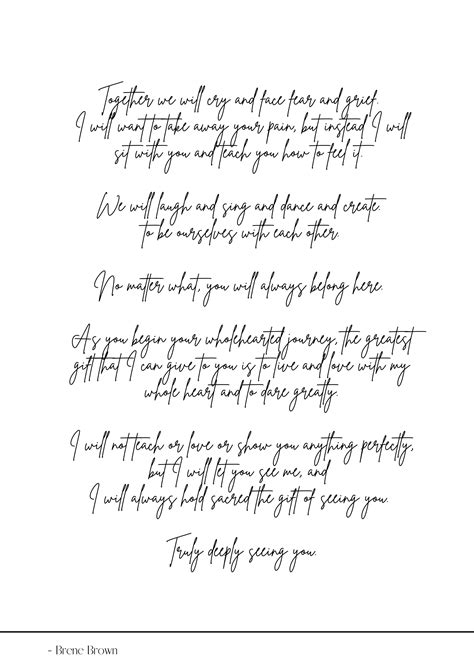 Together we will cry and face fear and grief.
I will want to take away your pain, but instead I will
sit with you and teach you how to feel it.
We will laugh and sing and dance and create.
To be ourselves with each other.
No matter what, you will always belong here.
As you begin your wholehearted journey, the greatest
gift that I can give to you is to live and love with my
whole heart and to dare greatly.
I will not teach or love or show you anything perfectly,
but I will let you see me, and
I will always hold sacred the gift of seeing you.
Truly deeply seeing you.
- Brene Brown